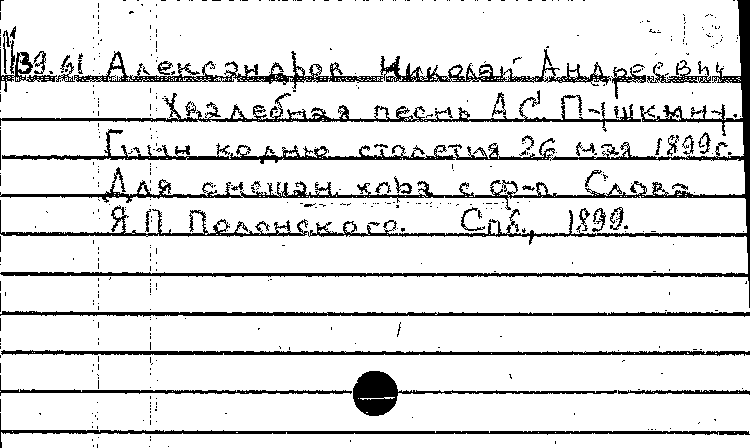 М 139.61 Александров Николай Андреевич
Хвалебная песнь А.С. Пушкину.
Гимн ко дню столетия 26 мая 1899г.
Для смешан. хора с ф-п. Слова
Я.П. Полонского. Спб., 1899.